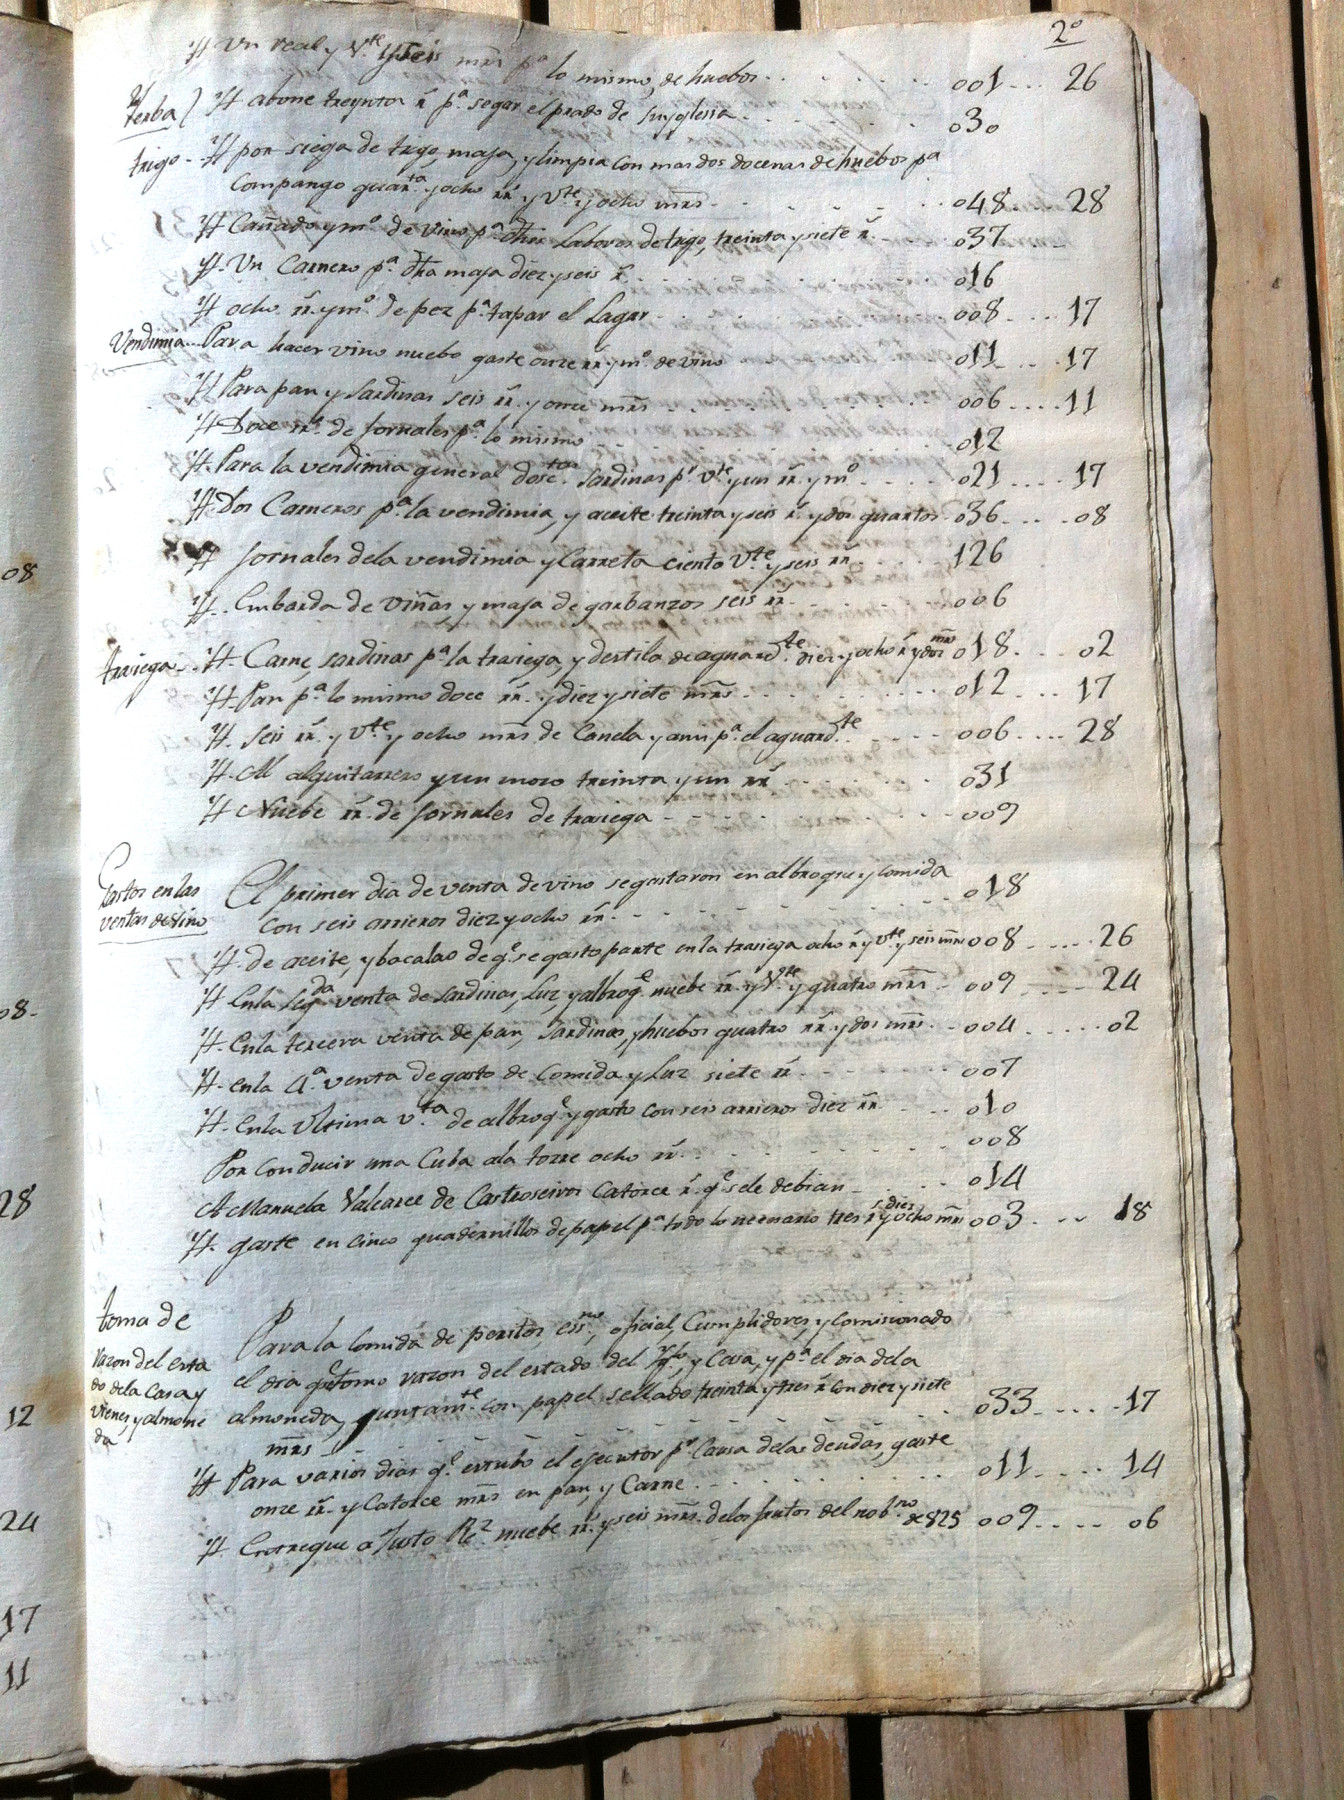 2º
It Un real y Vte y seis mrs pª lo mismo, de huebos . . . 001 . . . 26
Yerba) It abone treynta rr pª segar el prado de la yglesia . . . 030
trigo - It por siega de trigo, maja, y limpia con mas dos docenas de huebos pª
compango quarta y ocho rr y Vte y ocho mrs . . . 048 28
It Cañado y mº de vino pª dhas Labores de trigo, treinta y siete rr . 037
It. Un Carnero pª dha maja diez y seis rr 016
It ocho rr y mº de pez pª tapar el Lagar . . . 008 . . . 17
Vendimia . . Para hacer vino nuebo gaste onze rr y mº de vino 011 . . . 17
It Para pan y Sardinas seis rr. y once mrs . . . 006 . . . . 11
It Doce rrs. de Jornales pª lo mismo . . . 012
It. Para la vendimia general dosctas sardinas pr Vte y un rr y mº . . . 021 . . . . 17
It. Dos Carneros pª la vendimia, y aceite treinta y seis rr y dos quartos . 036 . . . . 08
It Jornales dela vendimia y Carreta ciento Vte y seis rr . . . 126
It. Embarda de viñas y maja de garbanzos seis rr . . . 006
trasiega . . It. Carne, sardinas pª la trasiega, y destila de aguardte. diez y ocho rr y dos mrs 018 . . . 02
It. Pan pª lo mismo doce rr. y diez y siete mrs . . . 012 . . . 17
It. Seis rr. y Vte y ocho mrs de Canela y anis pª el aguardte . . . 006 . . . . 28
It. Al alquitarrero y un mozo treinta y un rr . . . 031
It Nuebe rr. de Jornales de trasiega . . . 009
Gastos en las
ventas de vino
El primer dia de venta de vino se gastaron en alboroque y comida
con seis arrieros diez y ocho rr. . . . 018
It. de aceite, y bacalao de qe se gasto parte en la trasiega ocho rr y Vte y seis mrs 008 . . . . 26
It En la Segda venta de Sardinas, Luz, y alboroqe nuebe rr. y Vte y quatro mrs . 009 . . . . 24
It. En la tercera venta de pan, Sardinas, y huebos quatro rr y dos mrs . . 004 . . . . . 02
It. en la 4ª venta de gasto de Comida y Luz siete rr . . . 007
It. En la Ultima vta de alboroqe y gasto con seis arrieros diez rr . . . 010
Por conducir una Cuba a la torre ocho rr. . . . 008
A Manuela Valcarce de Castroseiros Catorce rr. qe se le debian . . . 014
It. gaste en cinco quadernillos de papel pª todo lo necesario tres rs y diez y ocho mrs 003 . . . 18
toma de
razon del esta
do dela Casa y
vienes y almone
da
Para la comida de peritos, essno, oficial, Cumplidores, y comisionado
el dia qe tomo razon del estado del y Casa, y pª el dia dela
almoneda, juntamte con papel sellado treinta y tres rr con diez y siete
mrs . . . 033 . . . . . 17
It Para varios dias qe estubo el ejecutor pr Causa delas deudas, gaste
onze rr. y Catorce mrs en pan, y Carne . . . 011 . . . . 14
It. Entregue a Justo Rz. nuebe rr. y seis mrs. delos frutos del nobno de 825 009 . . . . 06
08
08-
28
12
24
17
11